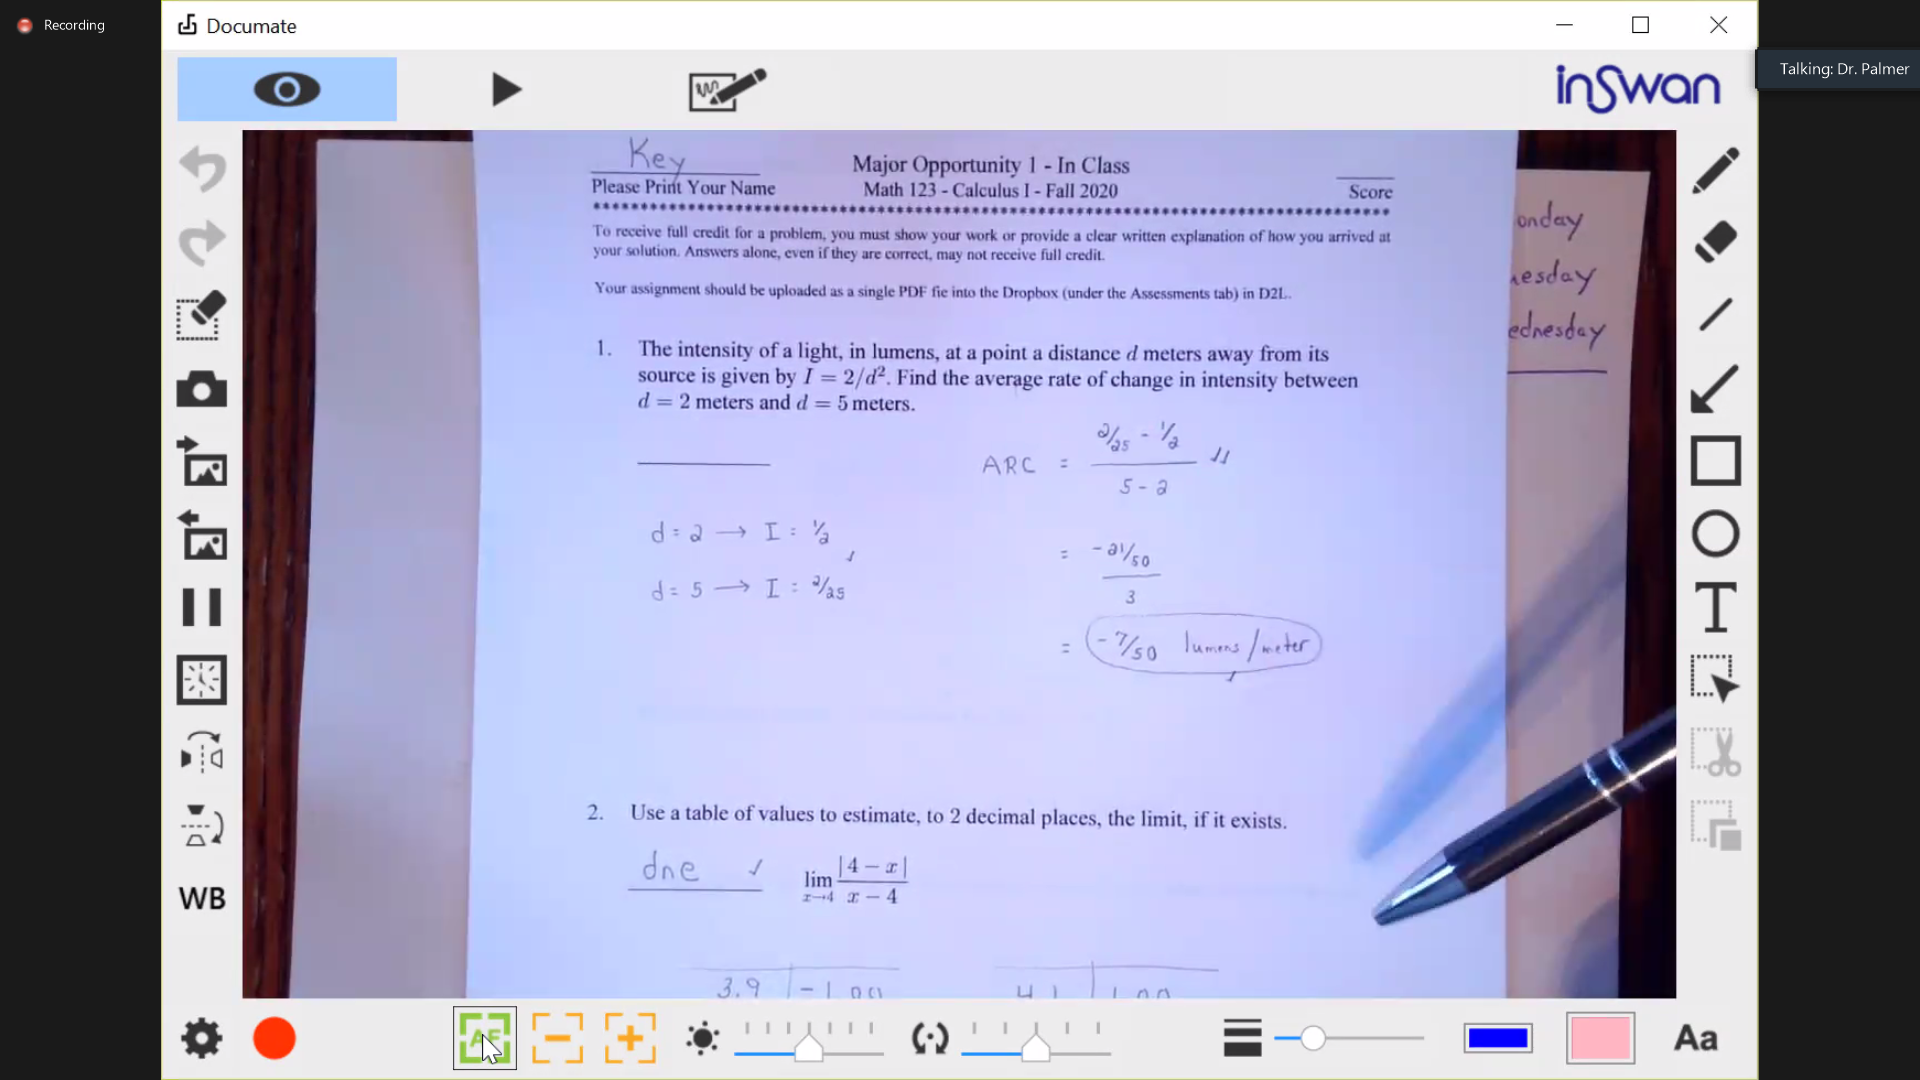 Recording
Documate
Talking: Dr. Palmer
inSwan
Key
Please Print Your Name
Major Opportunity 1 - In Class
Math 123 - Calculus I - Fall 2020
Score
************************************************************
To receive full credit for a problem, you must show your work or provide a clear written explanation of how you arrived at
your solution. Answers alone, even if they are correct, may not receive full credit.
Your assignment should be uploaded as a single PDF fie into the Dropbox (under the Assessments tab) in D2L.
onday
esday
ednesday
1. The intensity of a light, in lumens, at a point a distance d meters away from its
source is given by I = 2/d². Find the average rate of change in intensity between
d = 2 meters and d = 5 meters.
ARC = 2/25 - 1/2
5 - 2
d = 2 → I = 1/2
d = 5 → I = 2/25
= -21/50
3
= -7/50 lumens/meter
2. Use a table of values to estimate, to 2 decimal places, the limit, if it exists.
dne
lim |4 − x|
x→4 x − 4
3.9
WB
AF
T
Aa